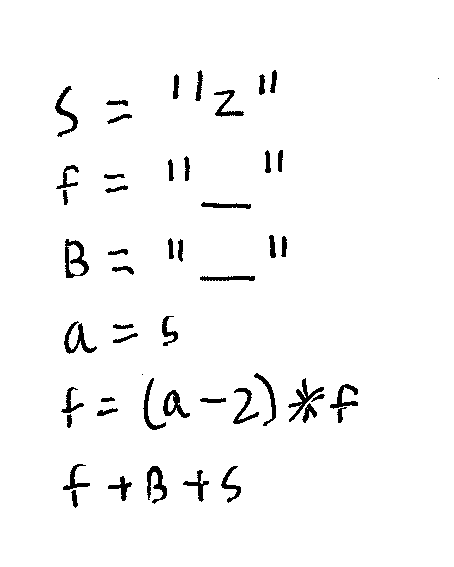 S = "z"
f = "_"
B = "_"
a = 5
f = (a-2)*f
f + B + S